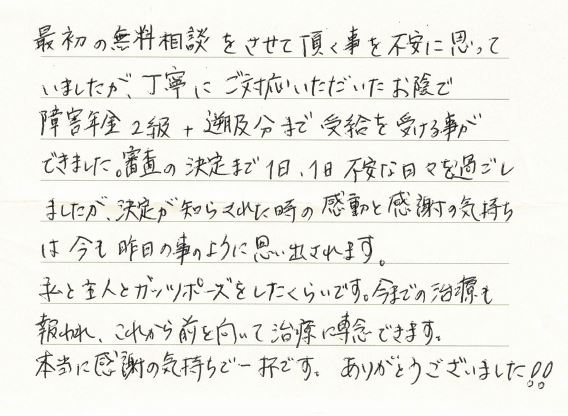 最初の無料相談をさせて頂く事を不安に思って
いましたが、丁寧にご対応いただいたお陰で
障害年金2級+遡及分まで受給を受ける事が
できました。審査の決定まで1日、1日不安な日々を過ごし
ましたが、決定が知らされた時の感動と感謝の気持ち
は今も昨日の事のように思い出されます。
私と主人とガッツポーズをしたくらいです。今までの治療も
報われ、これから前を向いて治療に専念できます。
本当に感謝の気持ちで一杯です。ありがとうございました!!